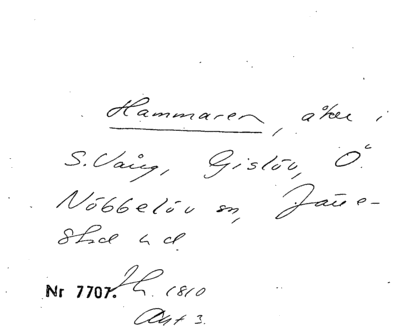 Hammaren, åker i
S. Vång, Gislöv, Ö.
Nöbbelöv sn, Järre-
stad hd.
Nr 7707. Jh. 1810
Akt 3.